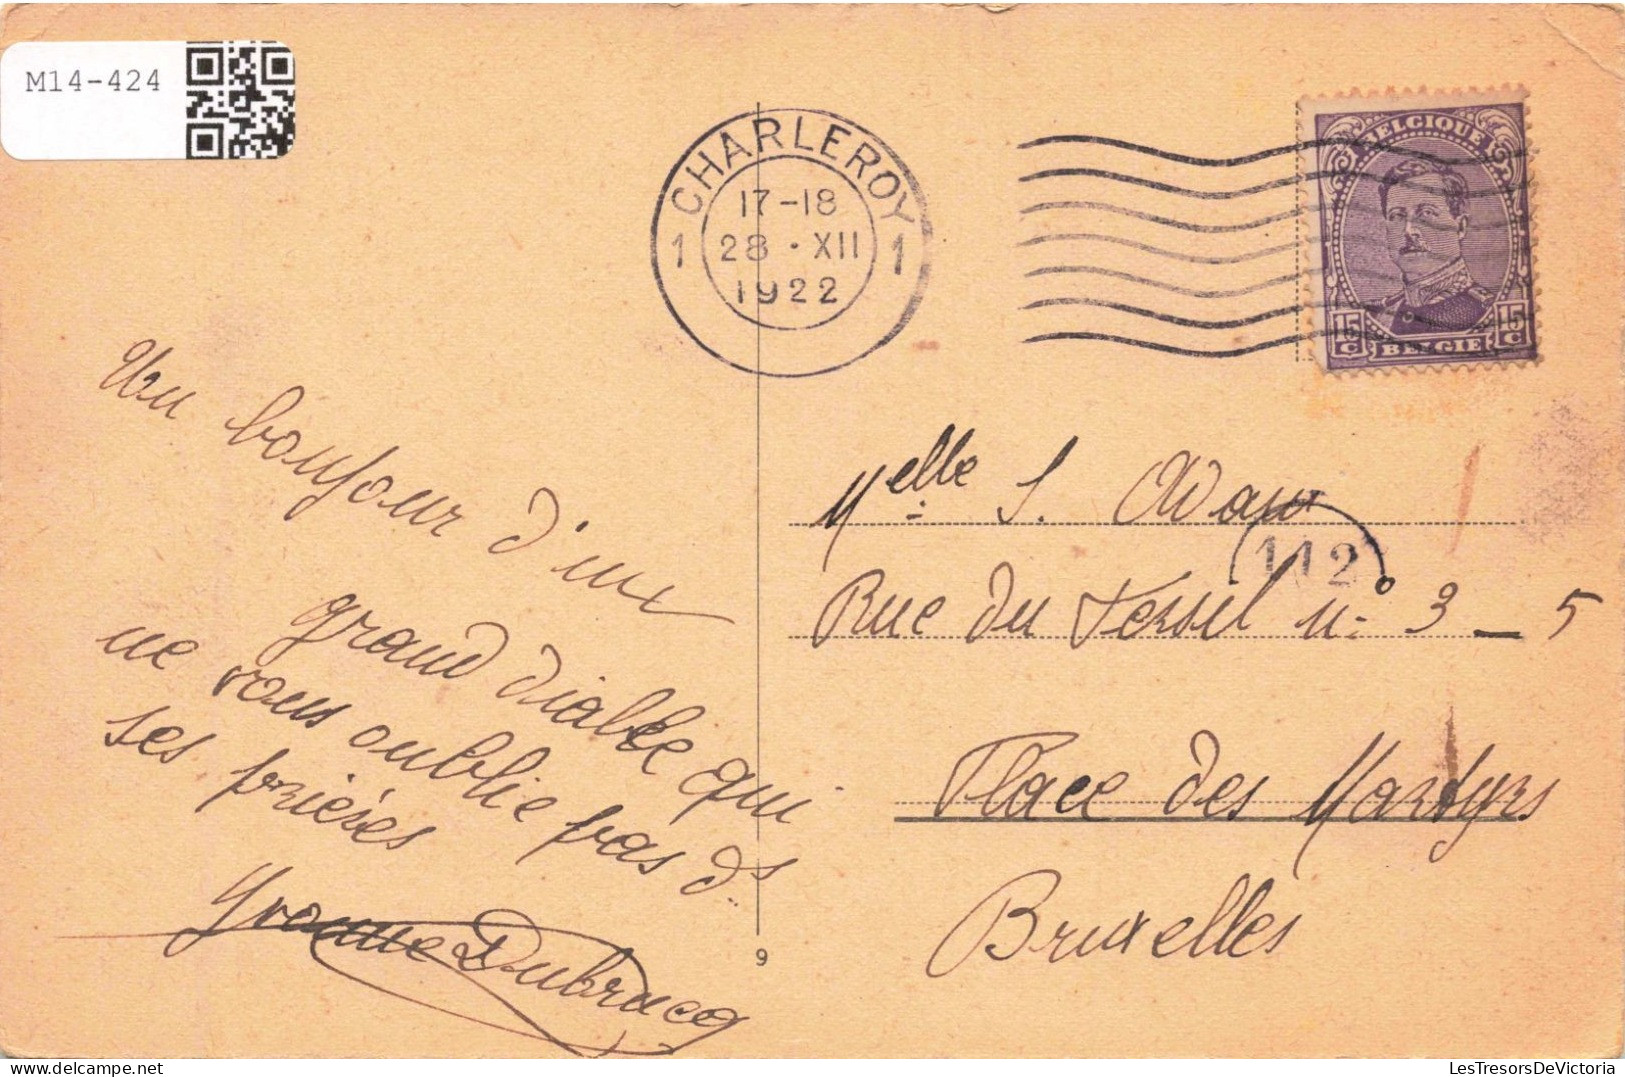 M14-424
1 CHARLEROY 1
17-18
28 · XII
1922
BELGIQUE
15 C 15 C
BELGIE
Un bonjour d'un
grand diable qui
ne vous oublie pas ds
ses prières
Yvonne Dubrucq
Melle S. Adam
112
Rue du Persil n° 3 _ 5
Place des Martyrs
Bruxelles
9
LesTresorsDeVictoria